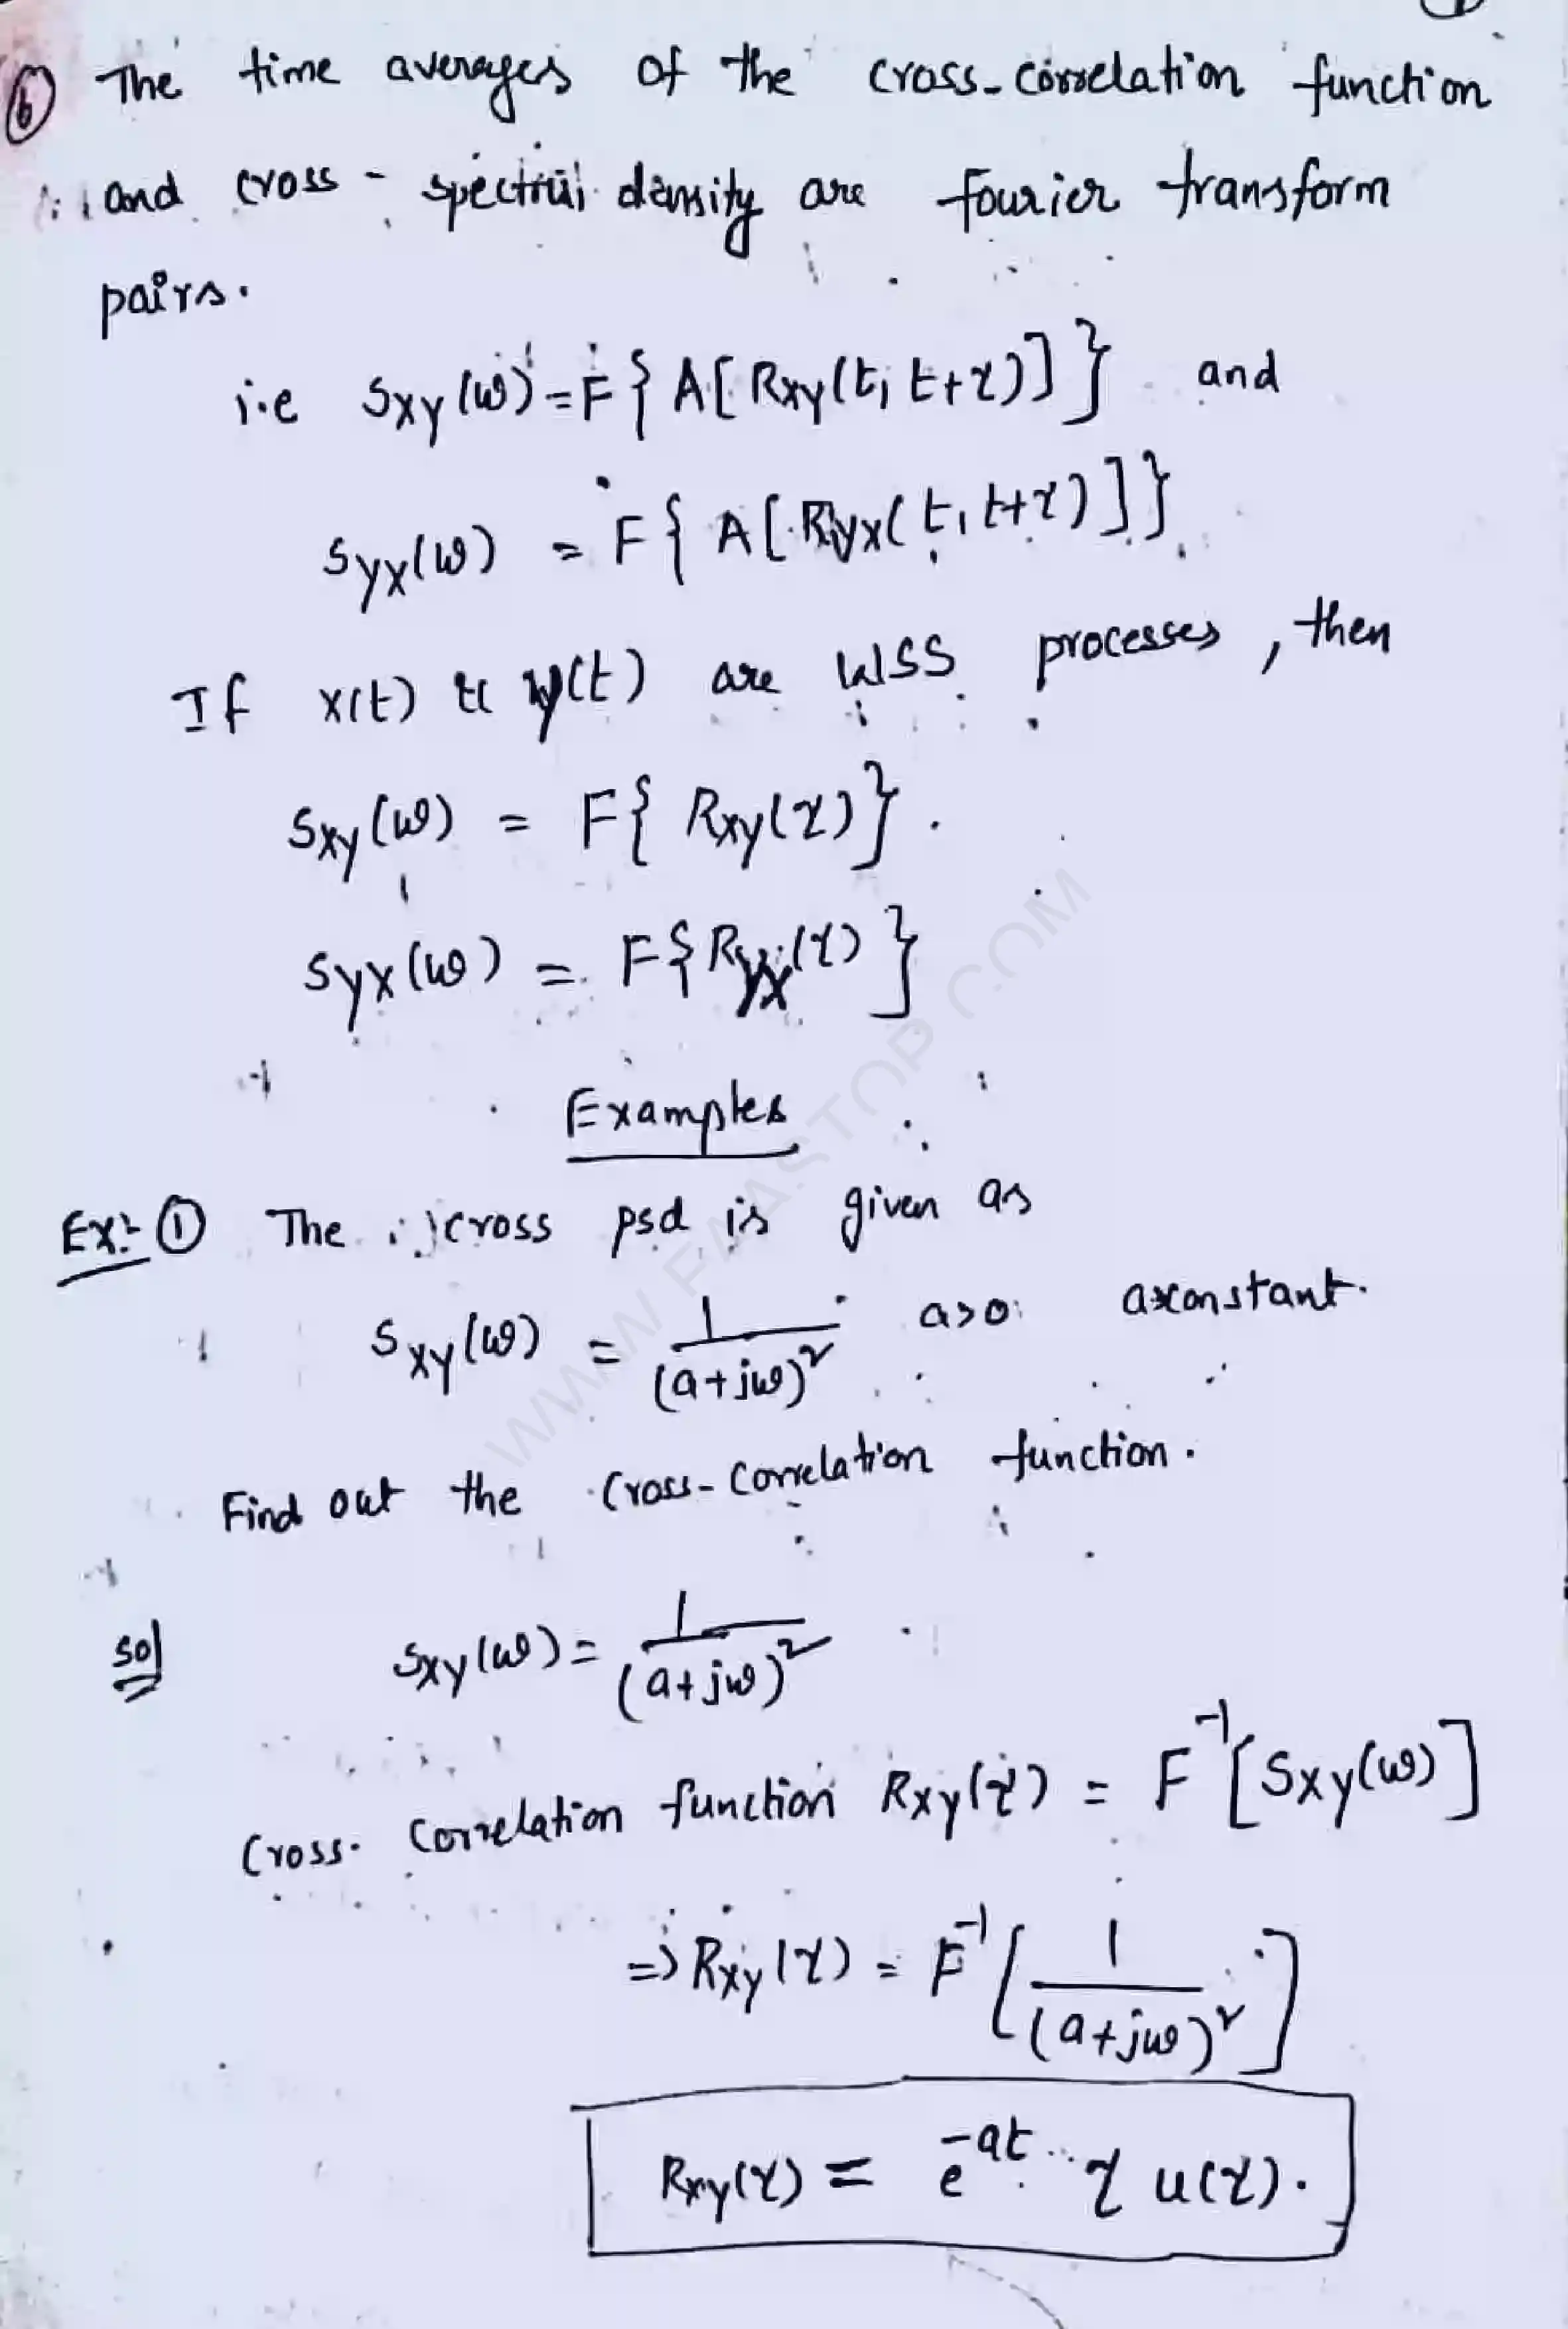 ⑥ The time averages of the cross-correlation function
and cross - spectral density are fourier transform
pairs.
i.e Sxy(ω) = F{ A[ Rxy(t, t+τ)] } and
Syx(ω) = F{ A[ Ryx(t, t+τ)] }
If x(t) & y(t) are WSS processes, then
Sxy(ω) = F{ Rxy(τ)}.
Syx(ω) = F{ Ryx(τ) }
Examples
Ex:- ① The cross psd is given as
Sxy(ω) = 1/(a+jω)² a>0 a=constant.
Find out the Cross-Correlation function.
Sol Sxy(ω) = 1/(a+jω)²
Cross-Correlation function Rxy(τ) = F⁻¹[Sxy(ω)]
=> Rxy(τ) = F⁻¹[1/(a+jω)²]
Rxy(τ) = e^-at τ u(τ).
WWW.FAASTOP.COM